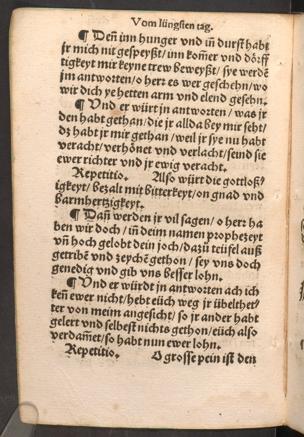 Vom lüngsten tag.
¶ Deñ inn hunger vnd iñ durst habt
jr mich nit gespeyßt/inn kom̃er vnd dörff
tigkeyt mir keyne trew beweyßt/ sye werdẽ
jm antworten/o herr es wer geschehn/wo
wir dich ye hetten arm vnd elend gesehn.
¶ Vnd er würt in antworten/was jr
den habt gethan/die jr all da bey mir seht/
dz habt jr mir gethan/weil jr sye nu habt
veracht/verhönet vnd verlacht/seind sie
ewer richter vnd jr ewig veracht.
Repetitio. Also würt die gottloß?
igkeyt/bezalt mit bitterkeyt/on gnad vnd
barmhertzigkeyt.
¶ Dañ werden jr vil sagen/o herr ha
ben wir doch/iñ deim namen prophezeyt
vñ hoch gelobt dein joch/dazů teüfel auß
getribẽ vnd zeychẽ gethon/sey vns doch
genedig vnd gib vns besser lohn.
¶ Vnd er würdt jn antworten ach ich
keñ ewer nicht/hebt eüch weg jr übelthet?
ter von meim angesicht/so jr ander habt
gelert vnd selbest nichts gethon/eüch also
verdam̃et/so habt nun ewer lohn.
Repetitio. O grosse pein ist den